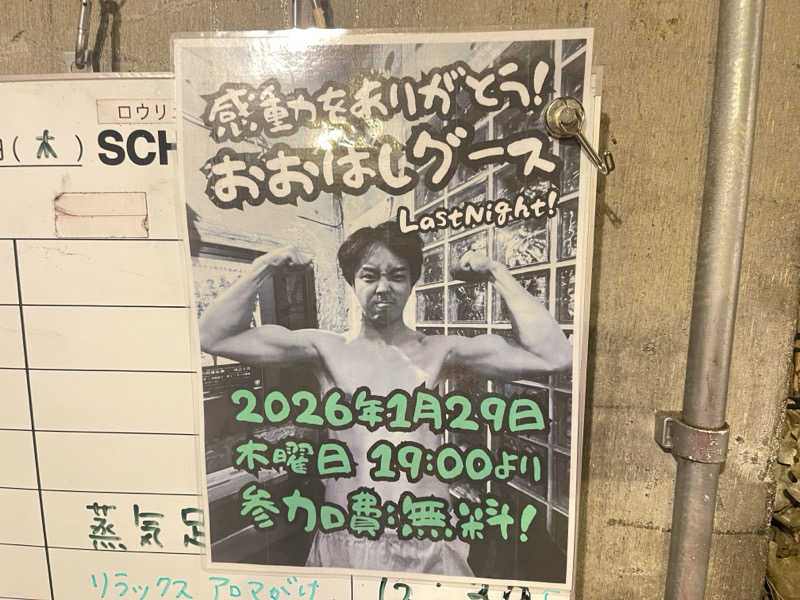 ロウリュ
(木) SCH
感動をありがとう!
おおはしグース
LastNight!
2026年1月29日
木曜日 19:00より
参加費:無料!
蒸気
リラックス アロマがけ